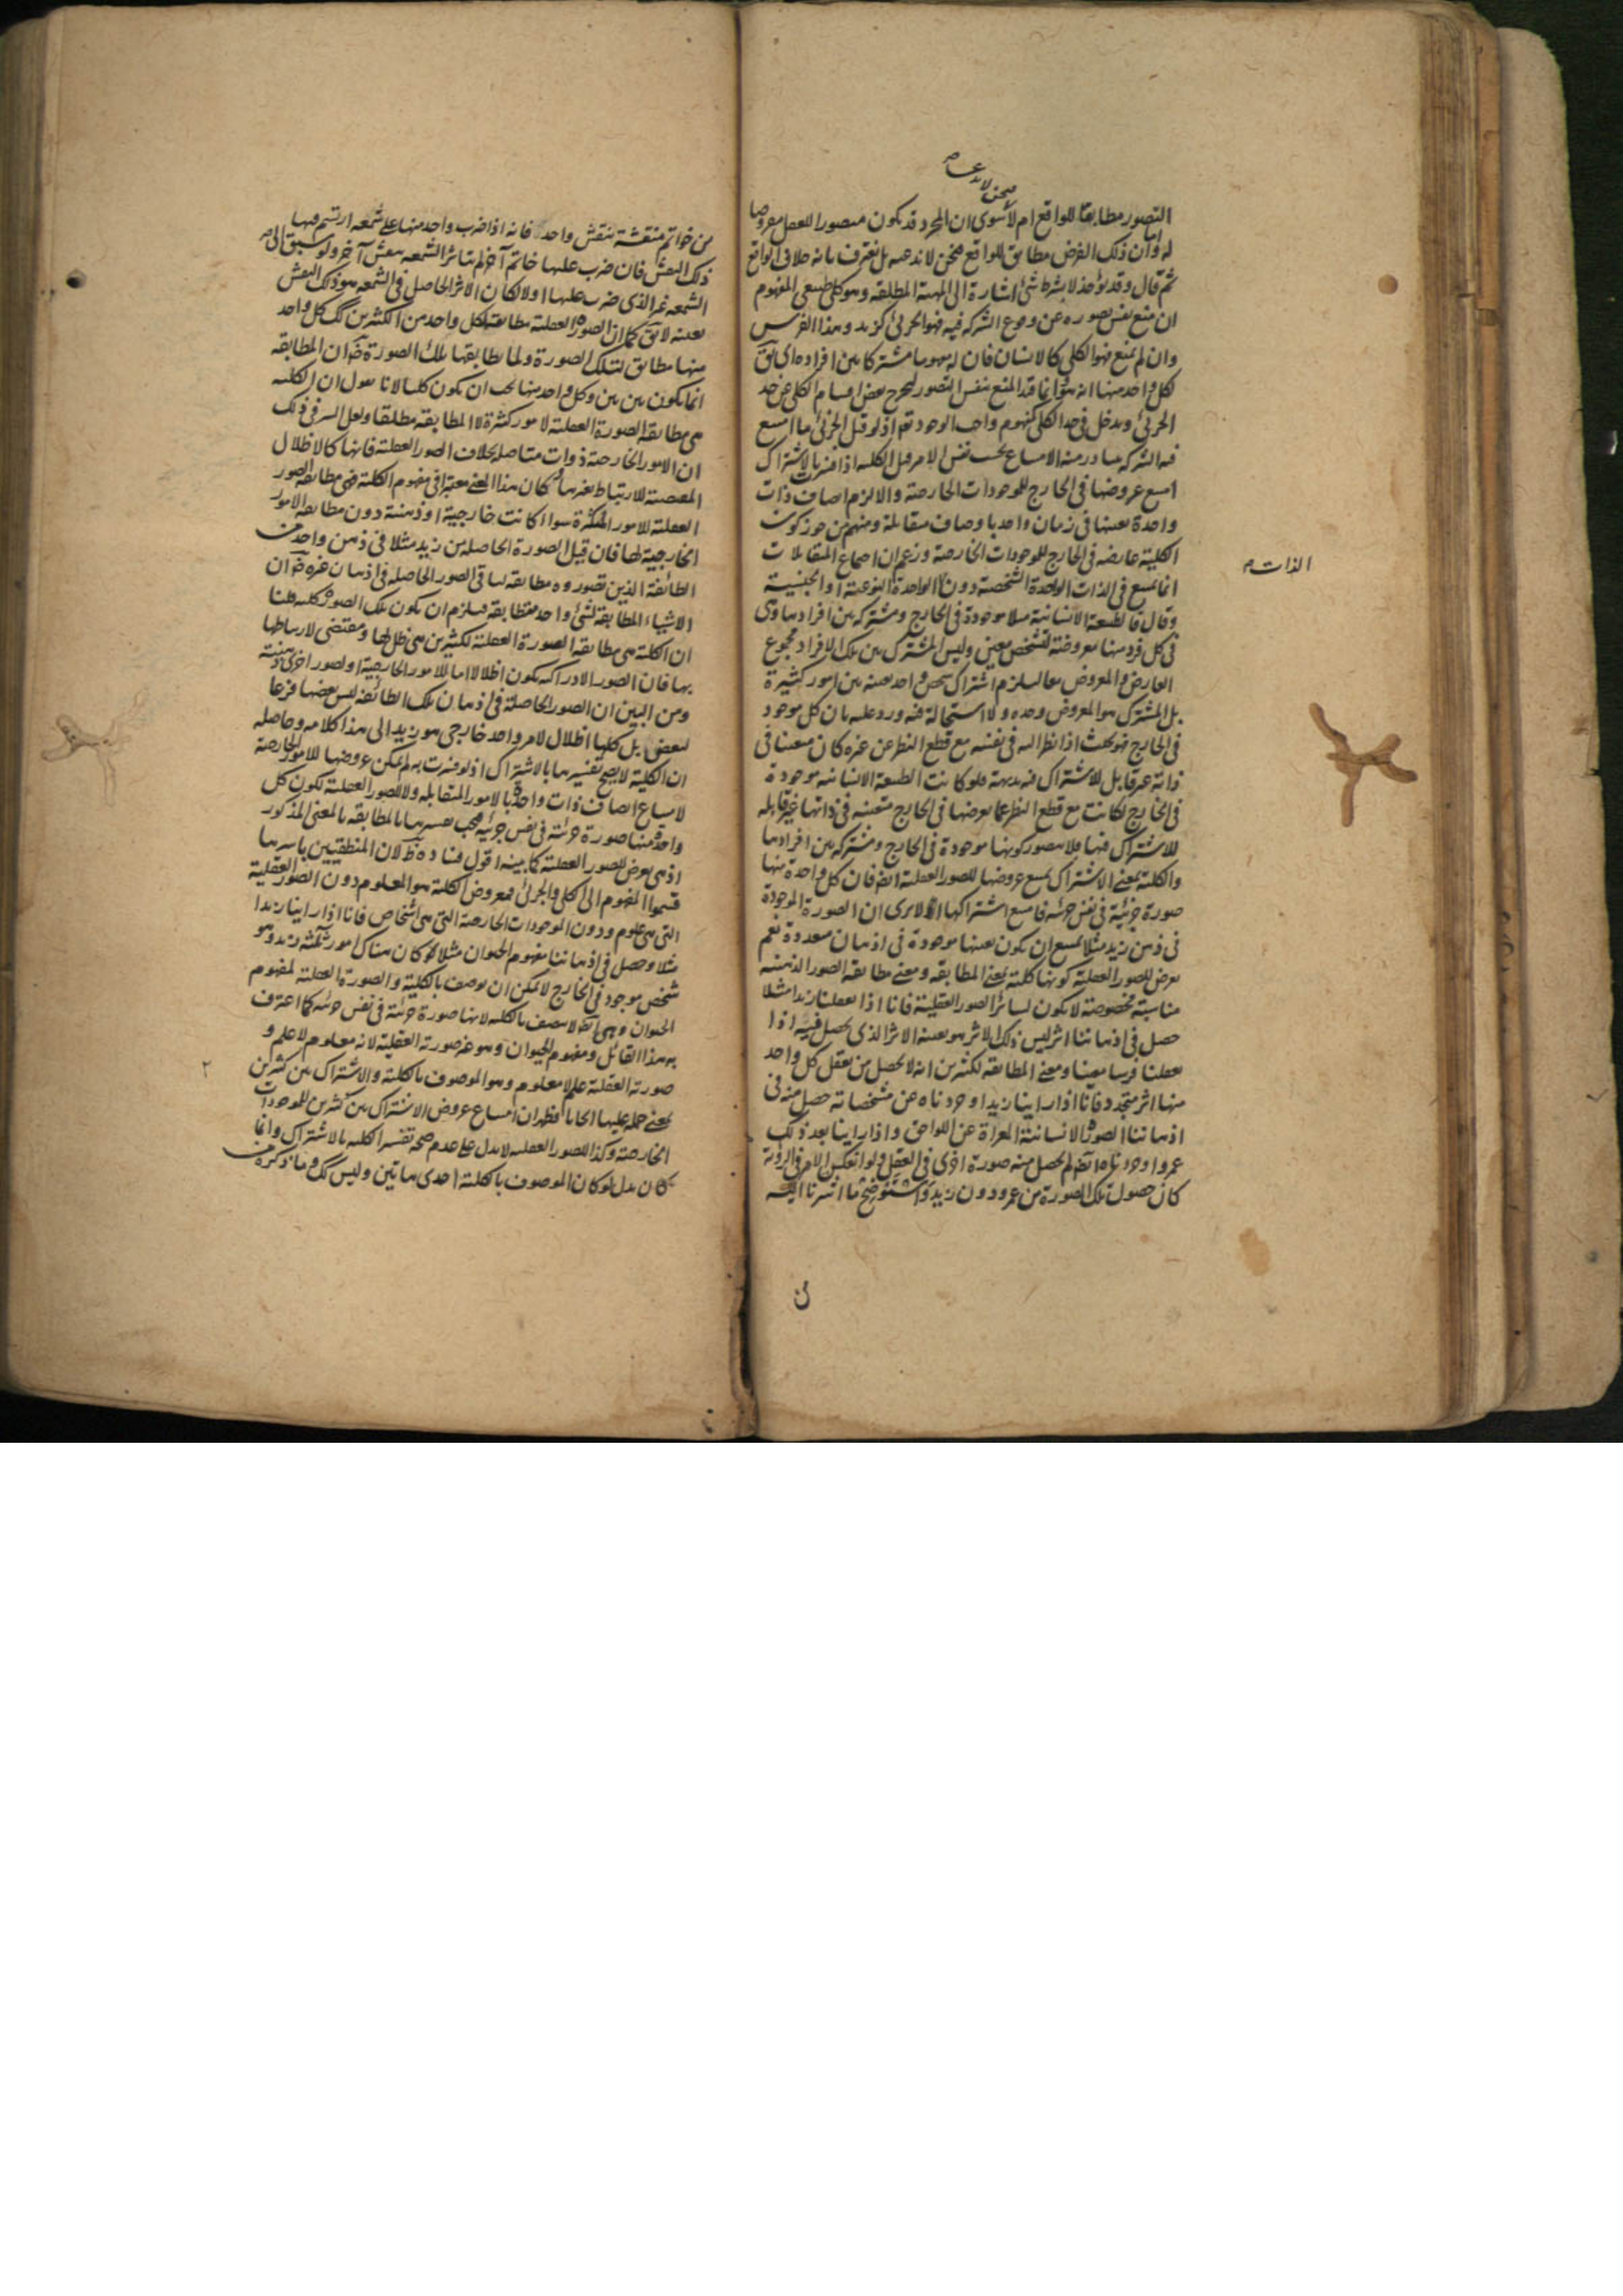 التصور مطابقا للواقع ام لا سوى ان المجرد قد يكون متصورا للعقل معروضا
له واما ان ذلك الفرض مطابق للواقع فنحن لا ندعيه بل نعترف بانه خلاف الواقع
ثم قال وقد تؤخذ لا بشرط شئ اشارة الى المهية المطلقه وهو كلى طبيعى المفهوم
ان منع نفس تصوره عن وقوع الشركه فيه فهو الجزئى كزيد وهذا الفرس
وان لم يمنع فهو الكلى كالانسان فان له مفهوما مشتركا بين افراده اى يق
لكل واحد منها انه هو وانما قيد المنع بنفس التصور ليخرج بعض اقسام الكلى عن حد
الجزئى ويدخل فى حد الكلى كمفهوم واجب الوجود تع اذ لو قيل الجزئى ما امتنع
فيه الشركه يتبادر منه الامتناع بحسب نفس الامر قيل الكليه اذا فسرت بالاشتراك
امتنع عروضها فى الخارج للموجودات الخارجية والا لزم اتصاف ذات
واحدة بعينها فى زمان واحد باوصاف متقابلة ومنهم من جوز كون
الكلية عارضه فى الخارج للموجودات الخارجية وزعم ان اجتماع المتقابلات
انما يمتنع فى الذات الواحدة الشخصية دون الواحدة النوعية او الجنسية
الذات م
وقال فالطبيعة الانسانية مثلا موجودة فى الخارج ومشتركه بين افرادها وهى
فى كل فرد منها معروضة لتشخص معين وليس المشترك بين تلك الافراد مجموع
العارض والمعروض معا ليلزم اشتراك شخص واحد بعينه بين امور كثيرة
بل المشترك هو المعروض وحده ولا استحالة فيه ورد عليه بان كل موجود
فى الخارج فهو بحيث اذا نظر اليه فى نفسه مع قطع النظر عن غيره كان متعينا فى
ذاته غير قابل للاشتراك فيه بديهة فلو كانت الطبيعة الانسانيه موجودة
فى الخارج لكانت مع قطع النظر عما يعرضها فى الخارج متعينه فى ذاتها غير قابله
للاشتراك فيها فلا يتصور كونها موجودة فى الخارج ومشتركه بين افرادها
والكلية بمعنى الاشتراك يمتنع عروضها للصور العقلية ايض فان كل واحدة منها
صورة جزئية فى نفس جزئيه فامتنع اشتراكها الا يرى ان الصورة الموجودة
فى ذهن زيد مثلا يمتنع ان يكون بعينها موجودة فى اذهان متعددة نعم
يعرض للصور العقلية كونها كلية بمعنى المطابقه ومعنى مطابقه الصور الذهنيه
مناسبة مخصوصة لا يكون لسائر الصور العقلية فانا اذا تعقلنا زيدا مثلا
حصل فى اذهاننا اثر ليس ذلك الاثر هو بعينه الاثر الذى يحصل فيه اذا
تعقلنا فرسا معينا ومعنى المطابقه لكثيرين انه لا يحصل من تعقل كل واحد
منها اثر متجدد فانا اذا راينا زيدا وجردناه عن مشخصاته حصل منه فى
اذهاننا الصورة الانسانية المعراة عن اللواحق واذا راينا بعد ذلك
عمروا وجردناه ايض لم يحصل منه صورة اخرى فى العقل ولو انعكس الامر فى الرؤية
كان حصول تلك الصورة من عمرو دون زيد واستوضح ما اشرنا اليه
من خواتم منتقشة بنقش واحد فانه اذا ضرب واحد منها على شمعه ارتسم فيها
ذلك النقش فان ضرب عليها خاتم آخر لم يتاثر الشمعه بنقش آخر ولو سبق الى
الشمعه غير الذى ضرب عليها اولا لكان الاثر الحاصل فى الشمعه هو ذلك النقش
بعينه لا يق كما ان الصورة العقلية مطابقة لكل واحد من الكثيرين كك كل واحد
منها مطابق لتلك الصورة ولما يطابقها تلك الصورة ضرورة ان المطابقه
انما يكون بين بين وكل واحد منها يجب ان يكون كليا لانا نقول ان الكليه
هى مطابقه الصورة العقلية لامور كثيرة لا المطابقه مطلقا ولعل السر فى ذلك
ان الامور الخارجية ذوات متاصله بخلاف الصور العقلية فانها كالاظلال
المقتضية للارتباط بغيرها وكان هذا المعنى معتبرا فى مفهوم الكلية فهى مطابقه الصور
العقلية للامور المتكثرة سواا كانت خارجية او ذهنية دون مطابقه الامور
الخارجية لها فان قيل الصورة الحاصله من زيد مثلا فى ذهن واحد من
الطائفة الذين تصوروه مطابقه لباقى الصور الحاصله فى اذهان غيره ضرورة ان
الاشياء المطابقة لشئ واحد متطابقه فيلزم ان يكون تلك الصورة كليه قلنا
ان الكلية هى مطابقه الصورة العقلية لكثيرين هى ظل لها ومقتضى لارتباطها
بها فان الصور الادراكيه يكون اظلالا اما للامور الخارجية او لصور اخرى ذهنية
ومن البين ان الصور الحاصلة فى اذهان تلك الطائفه ليس بعضها فرعا
لبعض بل كلها اظلال لامر واحد خارجى هو زيد الى هذا كلامه وحاصله
ان الكلية لا يصح تفسيرها بالاشتراك اذ لو فسرت به لم يمكن عروضها للامور الخارجية
لامتناع اتصاف ذات واحدة بالامور المتقابله ولا للصور العقلية لكون كل
واحدة منها صورة جزئية فى نفس جزئيه فيجب تفسيرها بالمطابقه بالمعنى المذكور
اذ هى يعرض للصور العقلية كما بينه اقول فساده ظ لان المنطقيين باسرهم
قسموا المفهوم الى الكلى والجزئى فمعروض الكلية هو المعلوم دون الصور العقلية
التى هى علوم ودون الموجودات الخارجية التى هى اشخاص فانا اذا راينا زيدا
مثلا وحصل فى اذهاننا مفهوم الحيوان مثلا كان هناك امور ثلثة زيد وهو
شخص موجود فى الخارج لا يمكن ان يوصف بالكلية والصورة العقلية لمفهوم
الحيوان وهى ايض لا يتصف بالكليه لانها صورة جزئية فى نفس جزئيه كما اعترف
به هذا القائل ومفهوم الحيوان وهو غير صورته العقلية لانه معلوم لا علم و
صورته العقلية علم لا معلوم وهو الموصوف بالكلية والاشتراك بين كثيرين
بمعنى حمله عليها ايجابا فظهر ان امتناع عروض الاشتراك بين كثيرين للموجودات
الخارجية وكذا للصور العقليه لا يدل على عدم صحه تفسير الكليه بالاشتراك وانما
كان يدل لو كان الموصوف بالكلية احدى هاتين وليس كك وما ذكره من